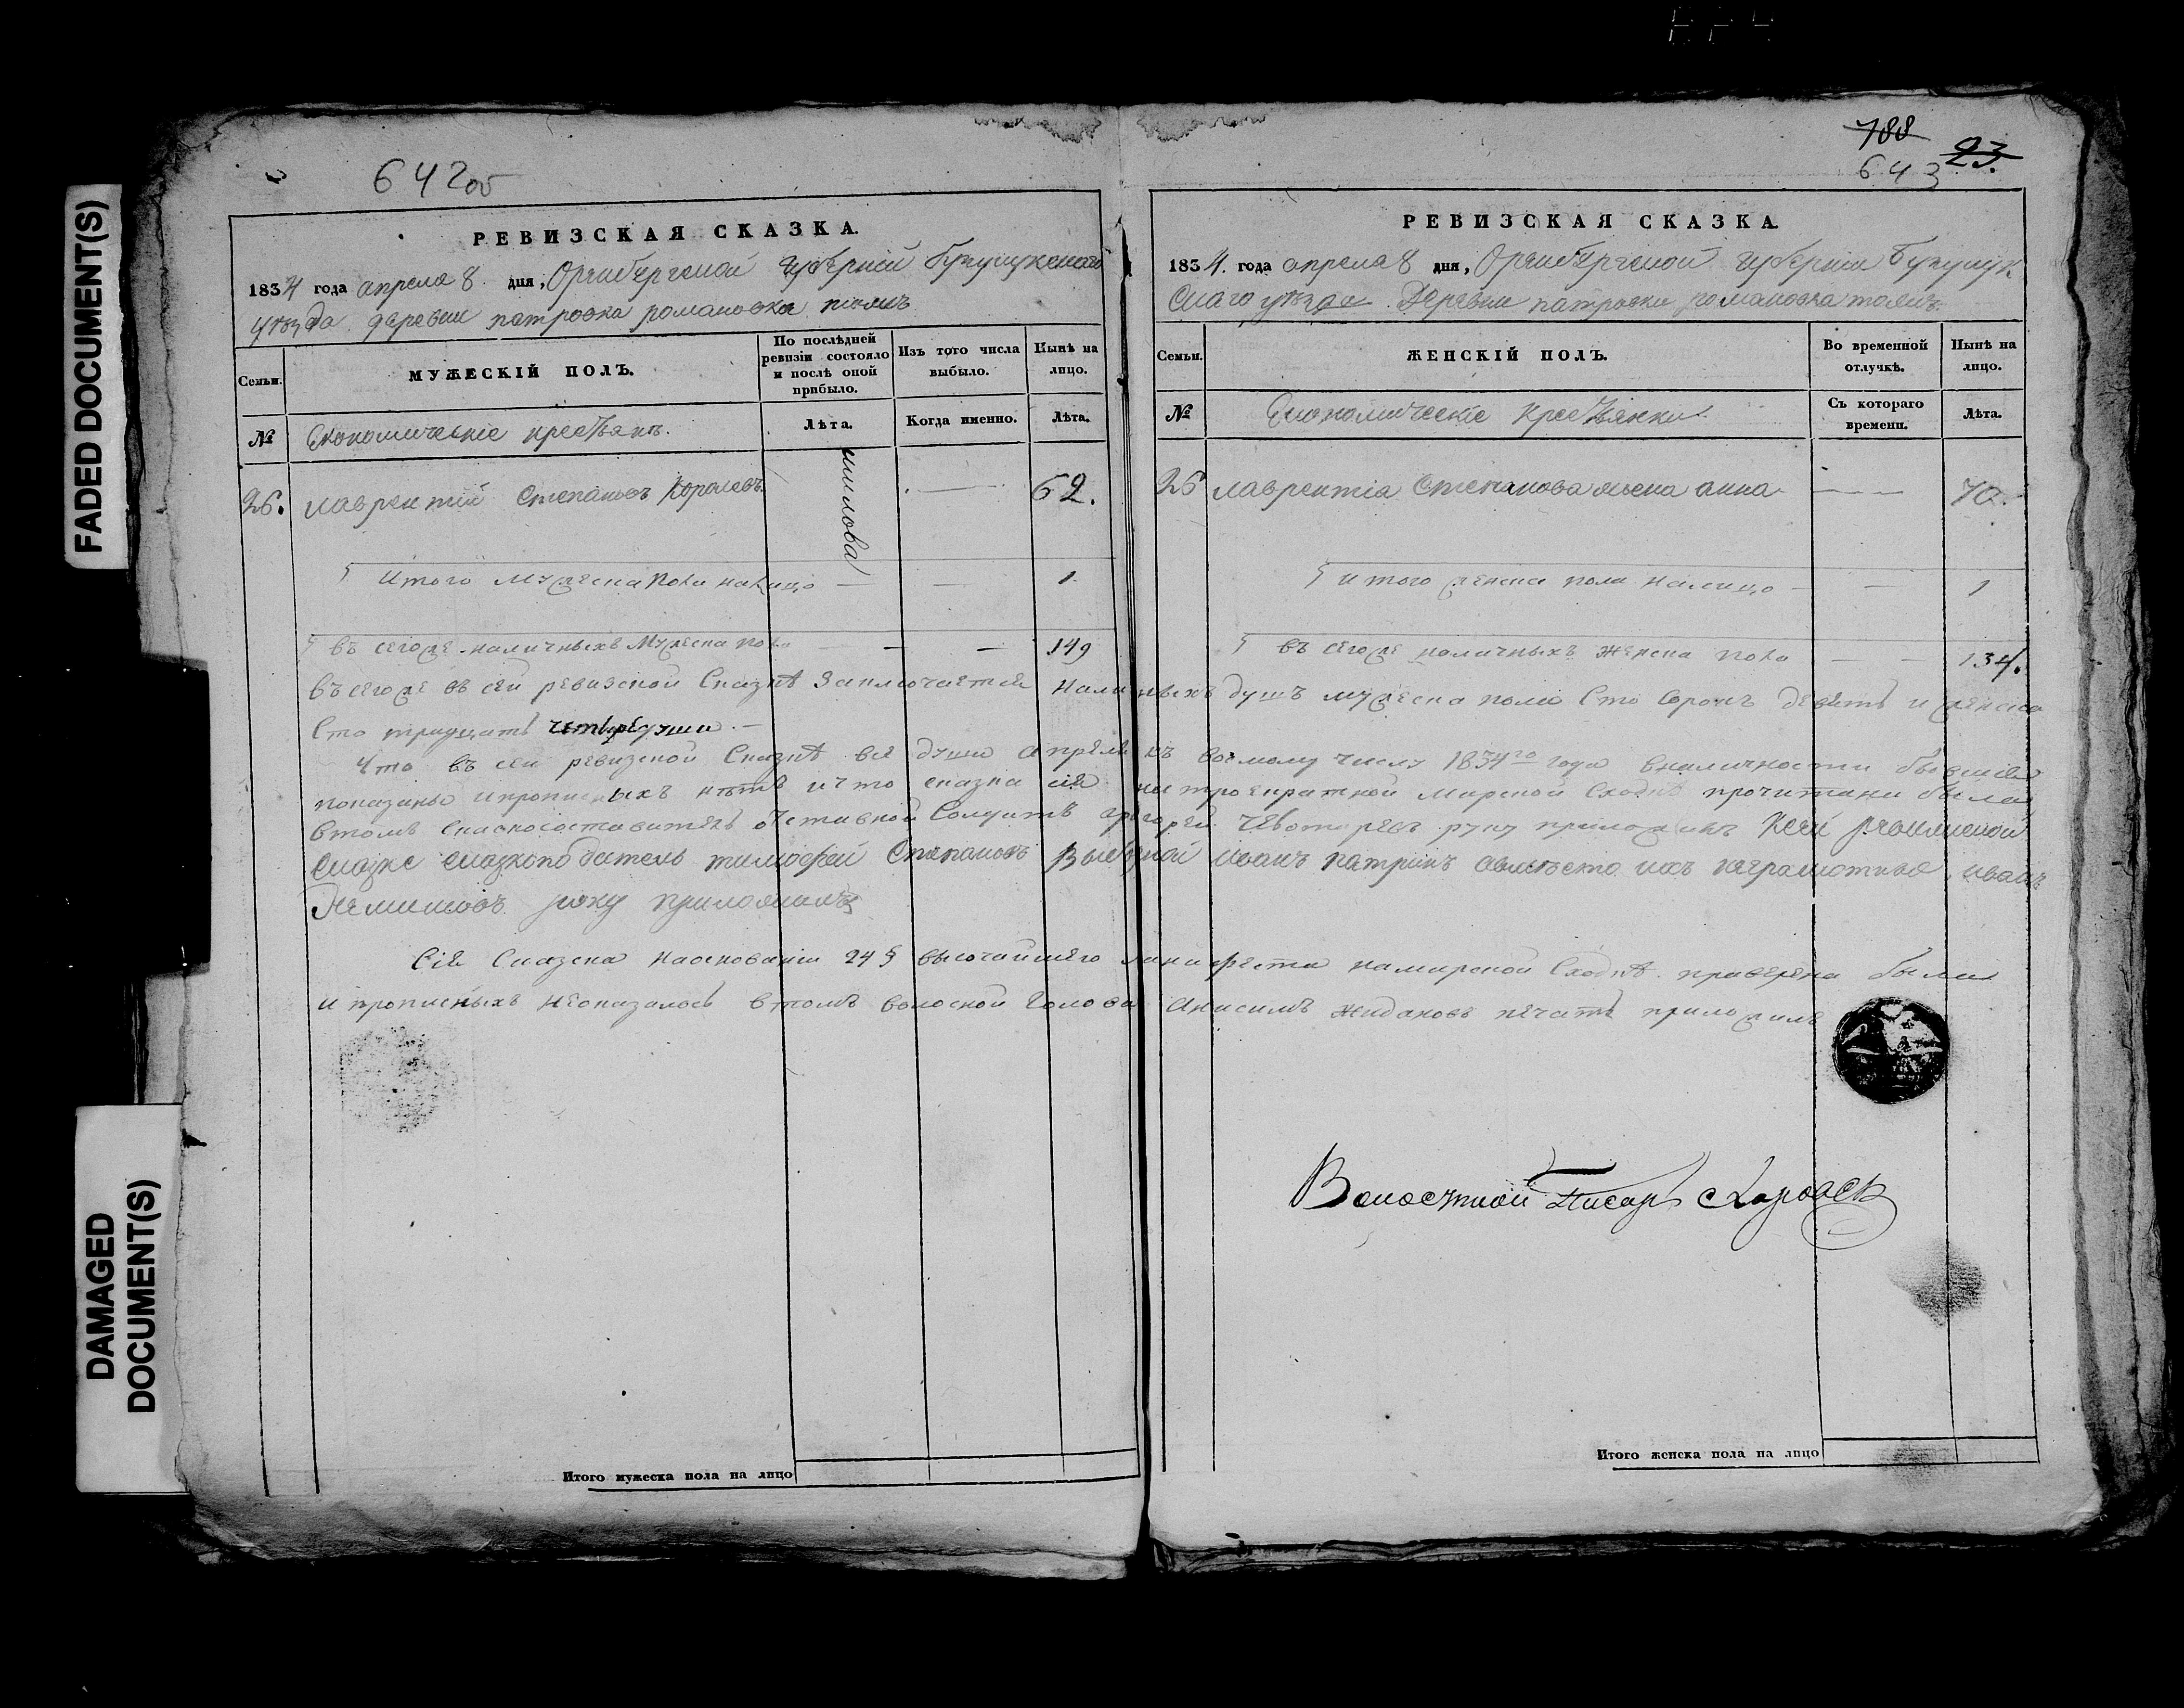 FADED DOCUMENT(S)
DAMAGED DOCUMENT(S)
642об
РЕВИЗСКАЯ СКАЗКА.
1834 года апреля 8 дня, Оренбергской губерний бузулукскаго
уѣзда деревни патровка романовка
Семьи. МУЖЕСКІЙ ПОЛЪ. По послѣдней ревизіи состояло и послѣ оной прибыло. Изъ того числа выбыло. Нынѣ на лицо.
№ Економическіе крестьянъ. Лѣта. Когда именно. Лѣта.
26. лаврентий Степановъ Королевъ. — 62.
Итого мужеска пола налицо — — 1
въсегоже наличныхъ мужеска пола — — 149
788
23.
643
РЕВИЗСКАЯ СКАЗКА.
1834. года апреля 8 дня, Оренбергской губернии бузулук
скаго уѣзда Деревни патровки романовка
Семьи. ЖЕНСКІЙ ПОЛЪ. Во временной отлучкѣ. Нынѣ на лицо.
№ Економическіе крестьянки. Съ котораго времени. Лѣта.
26 лаврентіа Степанова жена анна — 70.
итого женска пола налицо — — 1
въсегоже наличныхъ женска пола — — 134.
въсегоже въ сей ревизской Сказкѣ заключается наличныхъ душъ мужеска пола Сто Сорокъ девять и женска
Сто тридцать четыре души. —
Что въ сей ревизской Сказкѣ все души апреля къ восмому числу 1834го года вналичности бывшия
показаны ипрописныхъ нѣтъ ичто сказка сія натроекратной мирской Сходкѣ прочитана была
втомъ Отставной Солдатъ руку приложилъ Ксей ревижской
сказке сказкоподатель тимофей Степановъ выборной иванъ неграмотные иванъ
руку приложилъ
Сія Сказска Наоснованіи 24 § высочайшего манифеста намирской Сходкѣ проверена была
и прописныхъ Неоказалось втомъ волоской Голова Анисимъ Жидаковъ печать приложилъ
Волостной Писарь
Итого мужеска пола на лицо
Итого женска пола на лицо